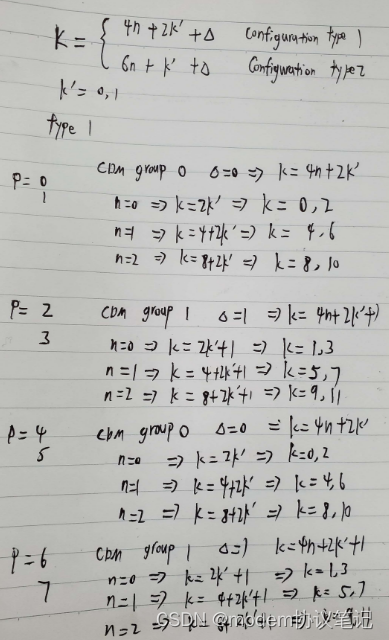 K = { 4n + 2k' + Δ Configuration type 1
6n + k' + Δ Configuration type 2
k' = 0, 1
type 1
P = 0 CDM group 0 Δ=0 => k = 4n+2k'
1
n=0 => k=2k' => k = 0, 2
n=1 => k=4+2k' => k = 4, 6
n=2 => k=8+2k' => k = 8, 10
P = 2 CDM group 1 Δ=1 => k = 4n+2k'+1
3
n=0 => k = 2k'+1 => k = 1, 3
n=1 => k = 4+2k'+1 => k = 5, 7
n=2 => k = 8+2k'+1 => k = 9, 11
P = 4 CDM group 0 Δ=0 => k = 4n+2k'
5
n=0 => k = 2k' => k=0, 2
n=1 => k = 4+2k' => k=4, 6
n=2 => k = 8+2k' => k = 8, 10
P = 6 CDM group 1 Δ=1 k = 4n+2k'+1
7
n=0 => k = 2k'+1 => k = 1, 3
n=1 => k = 4+2k'+1 => k = 5, 7
n=2 => k = 8+2k'+1 =>
CSDN @modem协议笔记